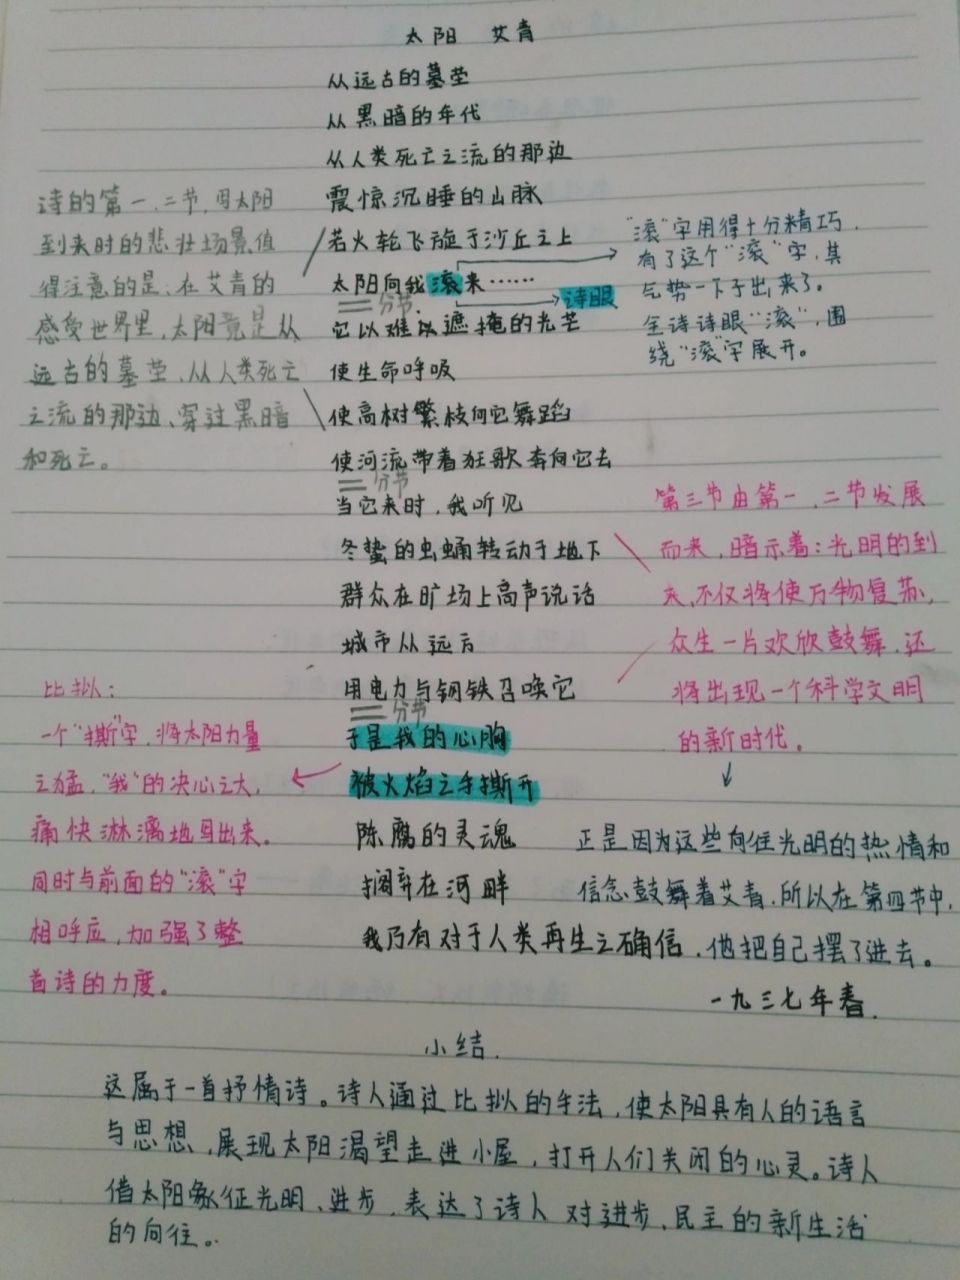 太阳 艾青
从远古的墓茔
从黑暗的年代
从人类死亡之流的那边
震惊沉睡的山脉
若火轮飞旋于沙丘之上
太阳向我滚来……
诗眼
二分节
它以难以遮掩的光芒
使生命呼吸
使高树繁枝向它舞蹈
使河流带着狂歌奔向它去
二分节
当它来时,我听见
冬蛰的虫蛹转动于地下
群众在旷场上高声说话
城市从远方
用电力与钢铁召唤它
二分节
于是我的心胸
被火焰之手撕开
陈腐的灵魂
搁弃在河畔
我乃有对于人类再生之确信
一九三七年春.
诗的第一、二节,写太阳
到来时的悲壮场景,值
得注意的是:在艾青的
感受世界里,太阳竟是从
远古的墓茔、从人类死亡
之流的那边、穿过黑暗
和死亡。
“滚”字用得十分精巧,
有了这个“滚”字,其
气势一下子出来了。
全诗诗眼“滚”,围
绕“滚”字展开。
第三节由第一、二节发展
而来,暗示着:光明的到
来,不仅将使万物复苏,
众生一片欢欣鼓舞,还
将出现一个科学文明
的新时代。
正是因为这些向往光明的热情和
信念鼓舞着艾青,所以在第四节中,
他把自己摆了进去。
比拟:
一个“撕”字,将太阳力量
之猛,“我”的决心之大,
痛快淋漓地写出来。
同时与前面的“滚”字
相呼应,加强了整
首诗的力度。
小结.
这属于一首抒情诗。诗人通过比拟的手法,使太阳具有人的语言
与思想,展现太阳渴望走进小屋,打开人们关闭的心灵。诗人
借太阳象征光明、进步,表达了诗人对进步、民主的新生活
的向往。